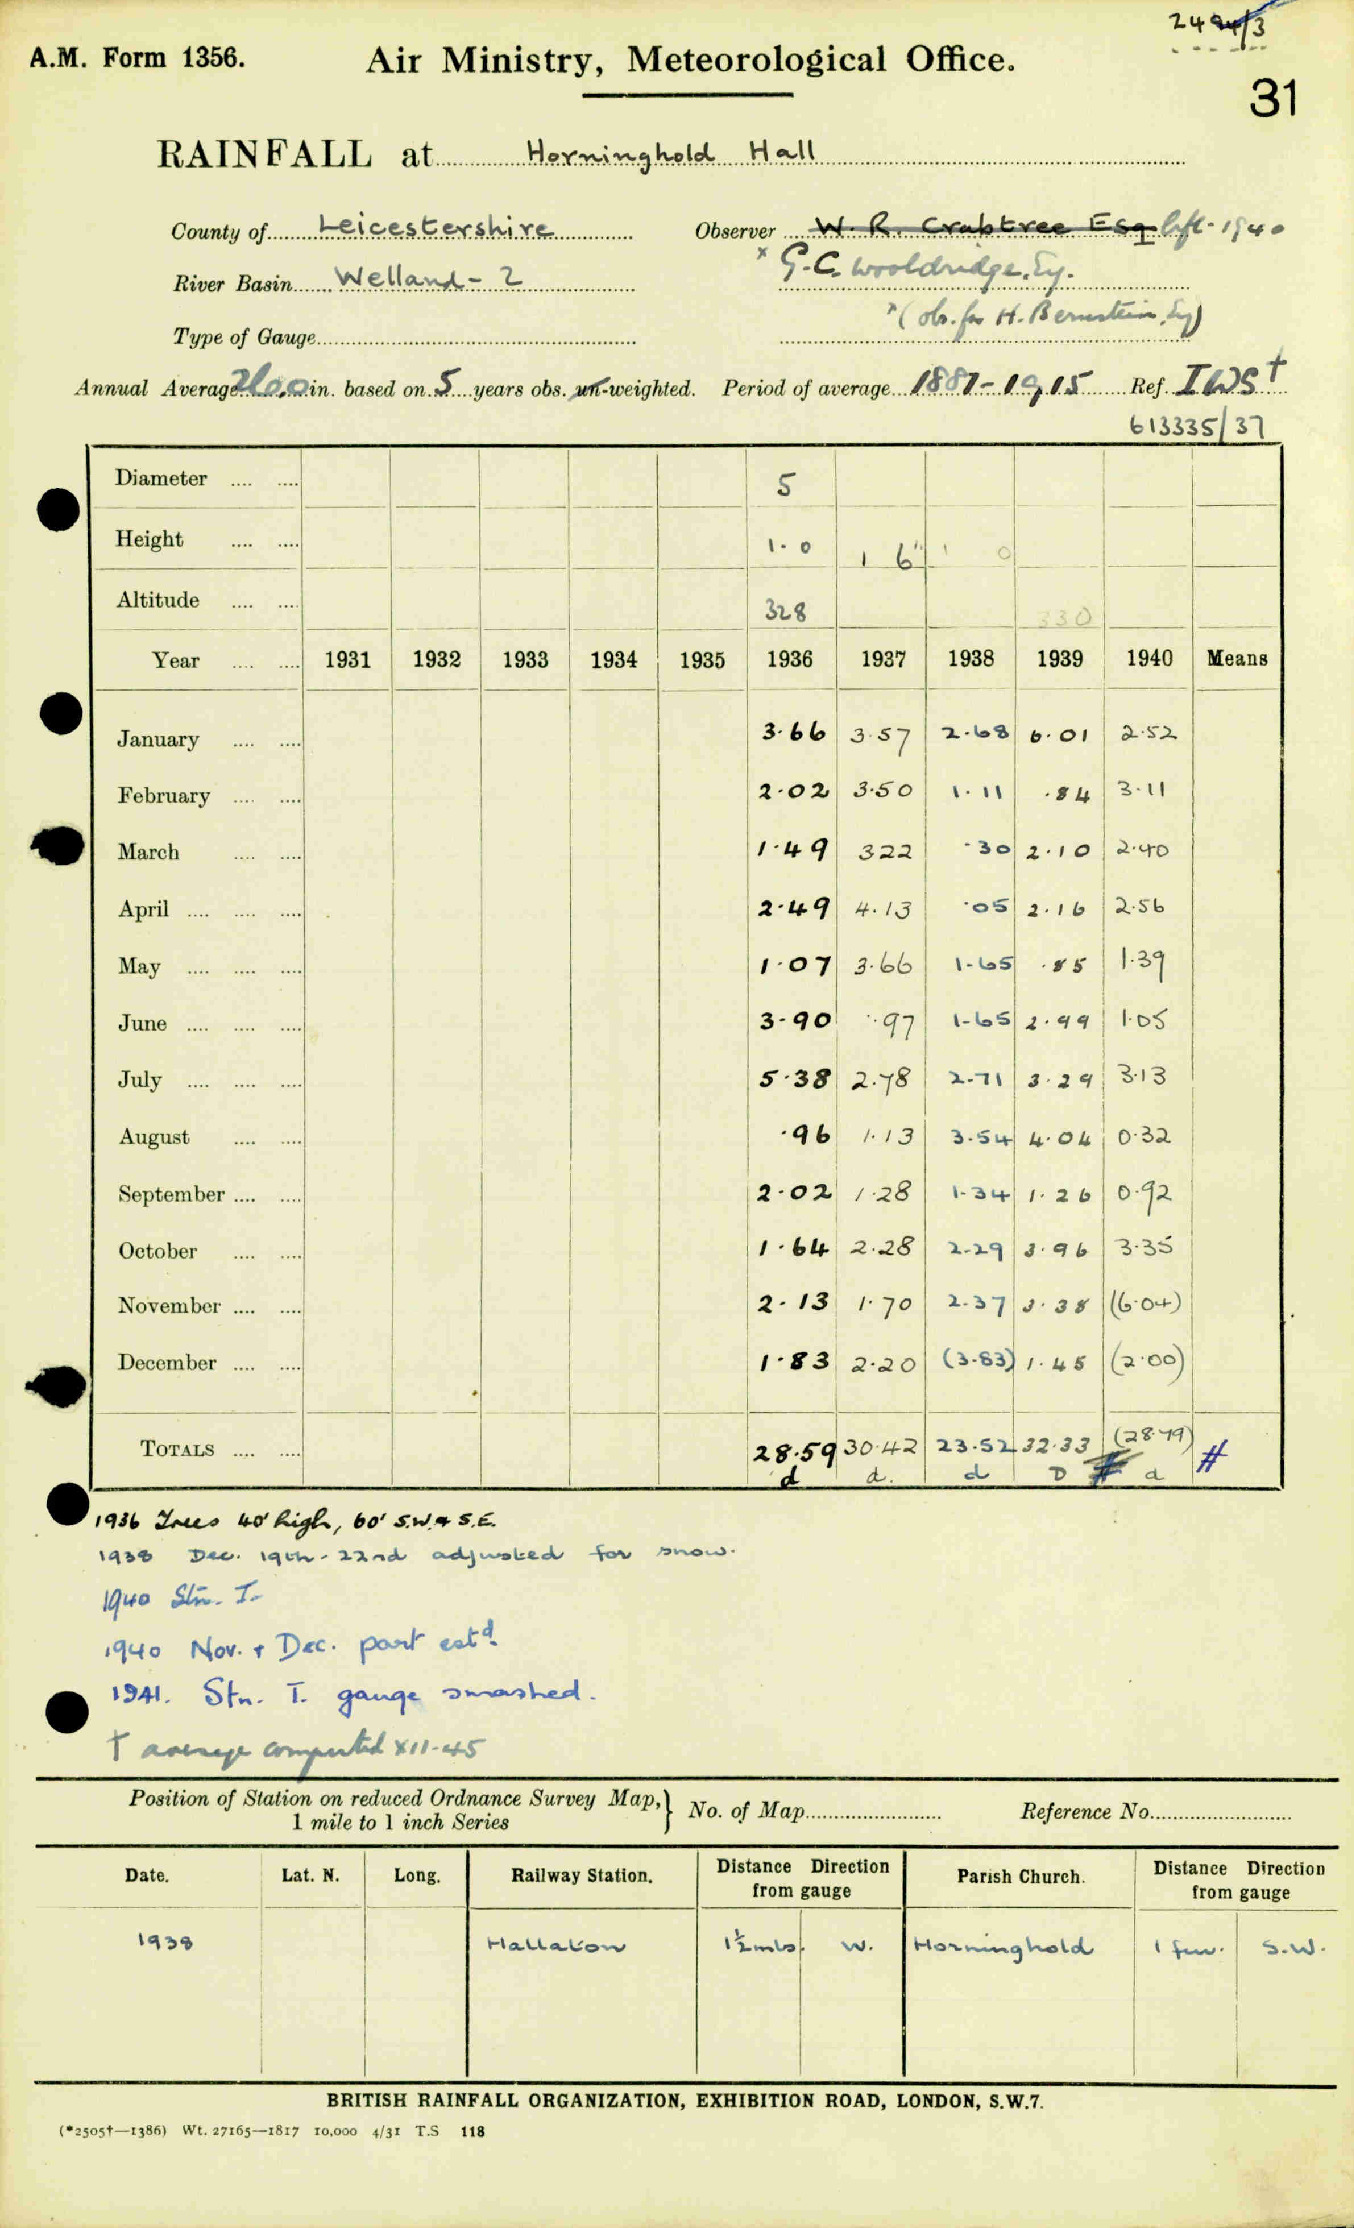 2494/3
A.M. Form 1356. Air Ministry, Meteorological Office.
31
RAINFALL at Horninghold Hall
County of Leicestershire Observer W. R. Crabtree Esq left 1940
River Basin Welland - 2 × G. C. Wooldridge, Esq.
Type of Gauge ×(obs. for H. Bernstein, Esq)
Annual Average in. based on 5 years obs. un-weighted. Period of average 1881-1915 Ref. IWS †
613335/37
Diameter 5
Height 1·0 1 6" 1 0
Altitude 328 330
Year 1931 1932 1933 1934 1935 1936 1937 1938 1939 1940 Means
January 3·66 3·57 2·68 6·01 2·52
February 2·02 3·50 1·11 ·84 3·11
March 1·49 322 ·30 2·10 2·40
April 2·49 4·13 ·05 2·16 2·56
May 1·07 3·66 1·65 ·85 1·39
June 3·90 ·97 1·65 2·99 1·05
July 5·38 2·78 2·71 3·29 3·13
August ·96 1·13 3·54 4·04 0·32
September 2·02 1·28 1·34 1·26 0·92
October 1·64 2·28 2·29 3·96 3·35
November 2·13 1·70 2·37 3·38 (6·04)
December 1·83 2·20 (3·83) 1·45 (2·00)
TOTALS 28·59 30·42 23·52 32·33 (28·79) #
d d. d D # d
1936 Trees 40' high, 60' S.W. & S.E.
1938 Dec. 19th - 22nd adjusted for snow.
1940 Stn. T.
1940 Nov. + Dec. part estd.
1941. Stn. T. gauge smashed.
† average computed XII-45
Position of Station on reduced Ordnance Survey Map, 1 mile to 1 inch Series } No. of Map Reference No.
Date. Lat. N. Long. Railway Station. Distance Direction from gauge Parish Church. Distance Direction from gauge
1938 Hallaton 1½ mls. W. Horninghold 1 fur. S.W.
BRITISH RAINFALL ORGANIZATION, EXHIBITION ROAD, LONDON, S.W.7.
(*2505†—1386) Wt. 27165—1817 10,000 4/31 T.S 118